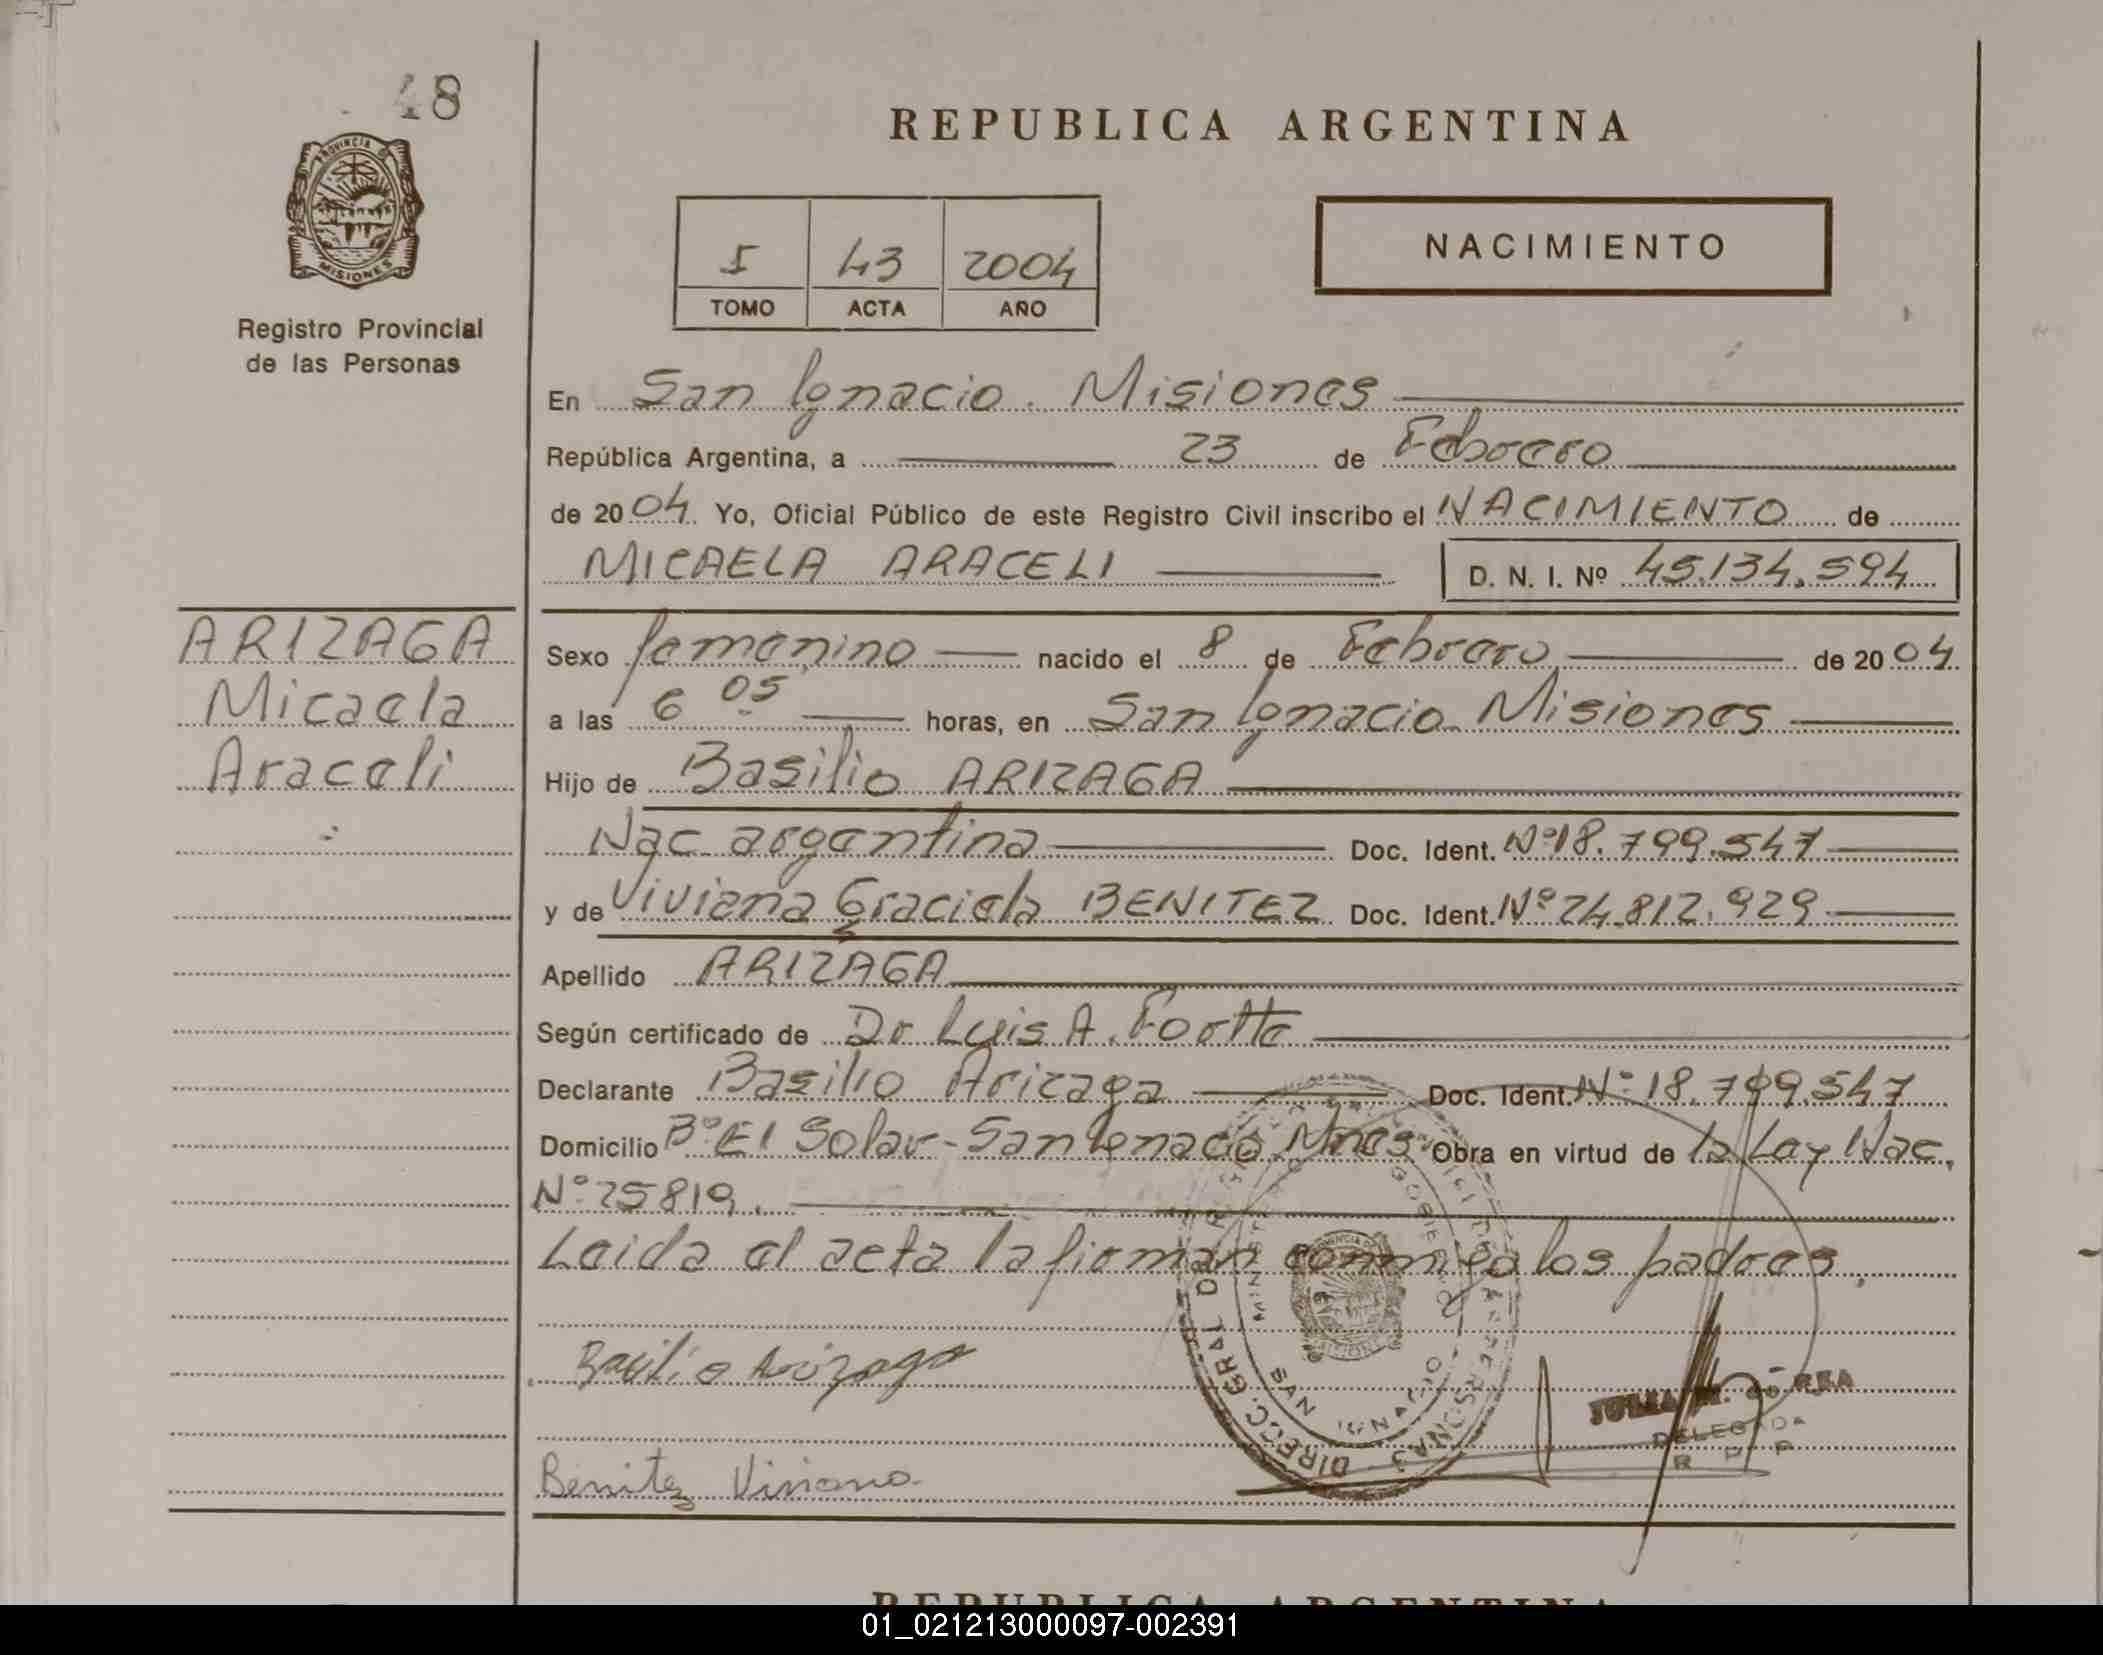 48
PROVINCIA DE
MISIONES
Registro Provincial
de las Personas
REPUBLICA ARGENTINA
I 43 2004
TOMO ACTA AÑO
NACIMIENTO
En San Ignacio. Misiones
República Argentina, a 23 de Febrero
de 2004 Yo, Oficial Público de este Registro Civil inscribo el NACIMIENTO de
MICAELA ARACELI D. N. I. Nº 45.134.594
ARIZAGA
Micaela
Araceli
Sexo femenino nacido el 8 de Febrero de 2004
a las 6 05 horas, en San Ignacio Misiones
Hijo de Basilio ARIZAGA
Nac argentina Doc. Ident. Nº 18.799.547
y de Viviana Graciela BENITEZ Doc. Ident. Nº 24.812.929
Apellido ARIZAGA
Según certificado de Dr Luis A.
Declarante Basilio Arizaga Doc. Ident. Nº 18.799.547
Domicilio Bº El Solar - San Ignacio Mnes Obra en virtud de la Ley Nac.
Nº 25819.
Leida el acta la firman conmigo los padres.
Basilio Arizaga
Benitez Viviana
DIREC. GRAL D
SAN IGNACIO
DELEGADA
R P P
REPUBLICA ARGENTINA
01_021213000097-002391